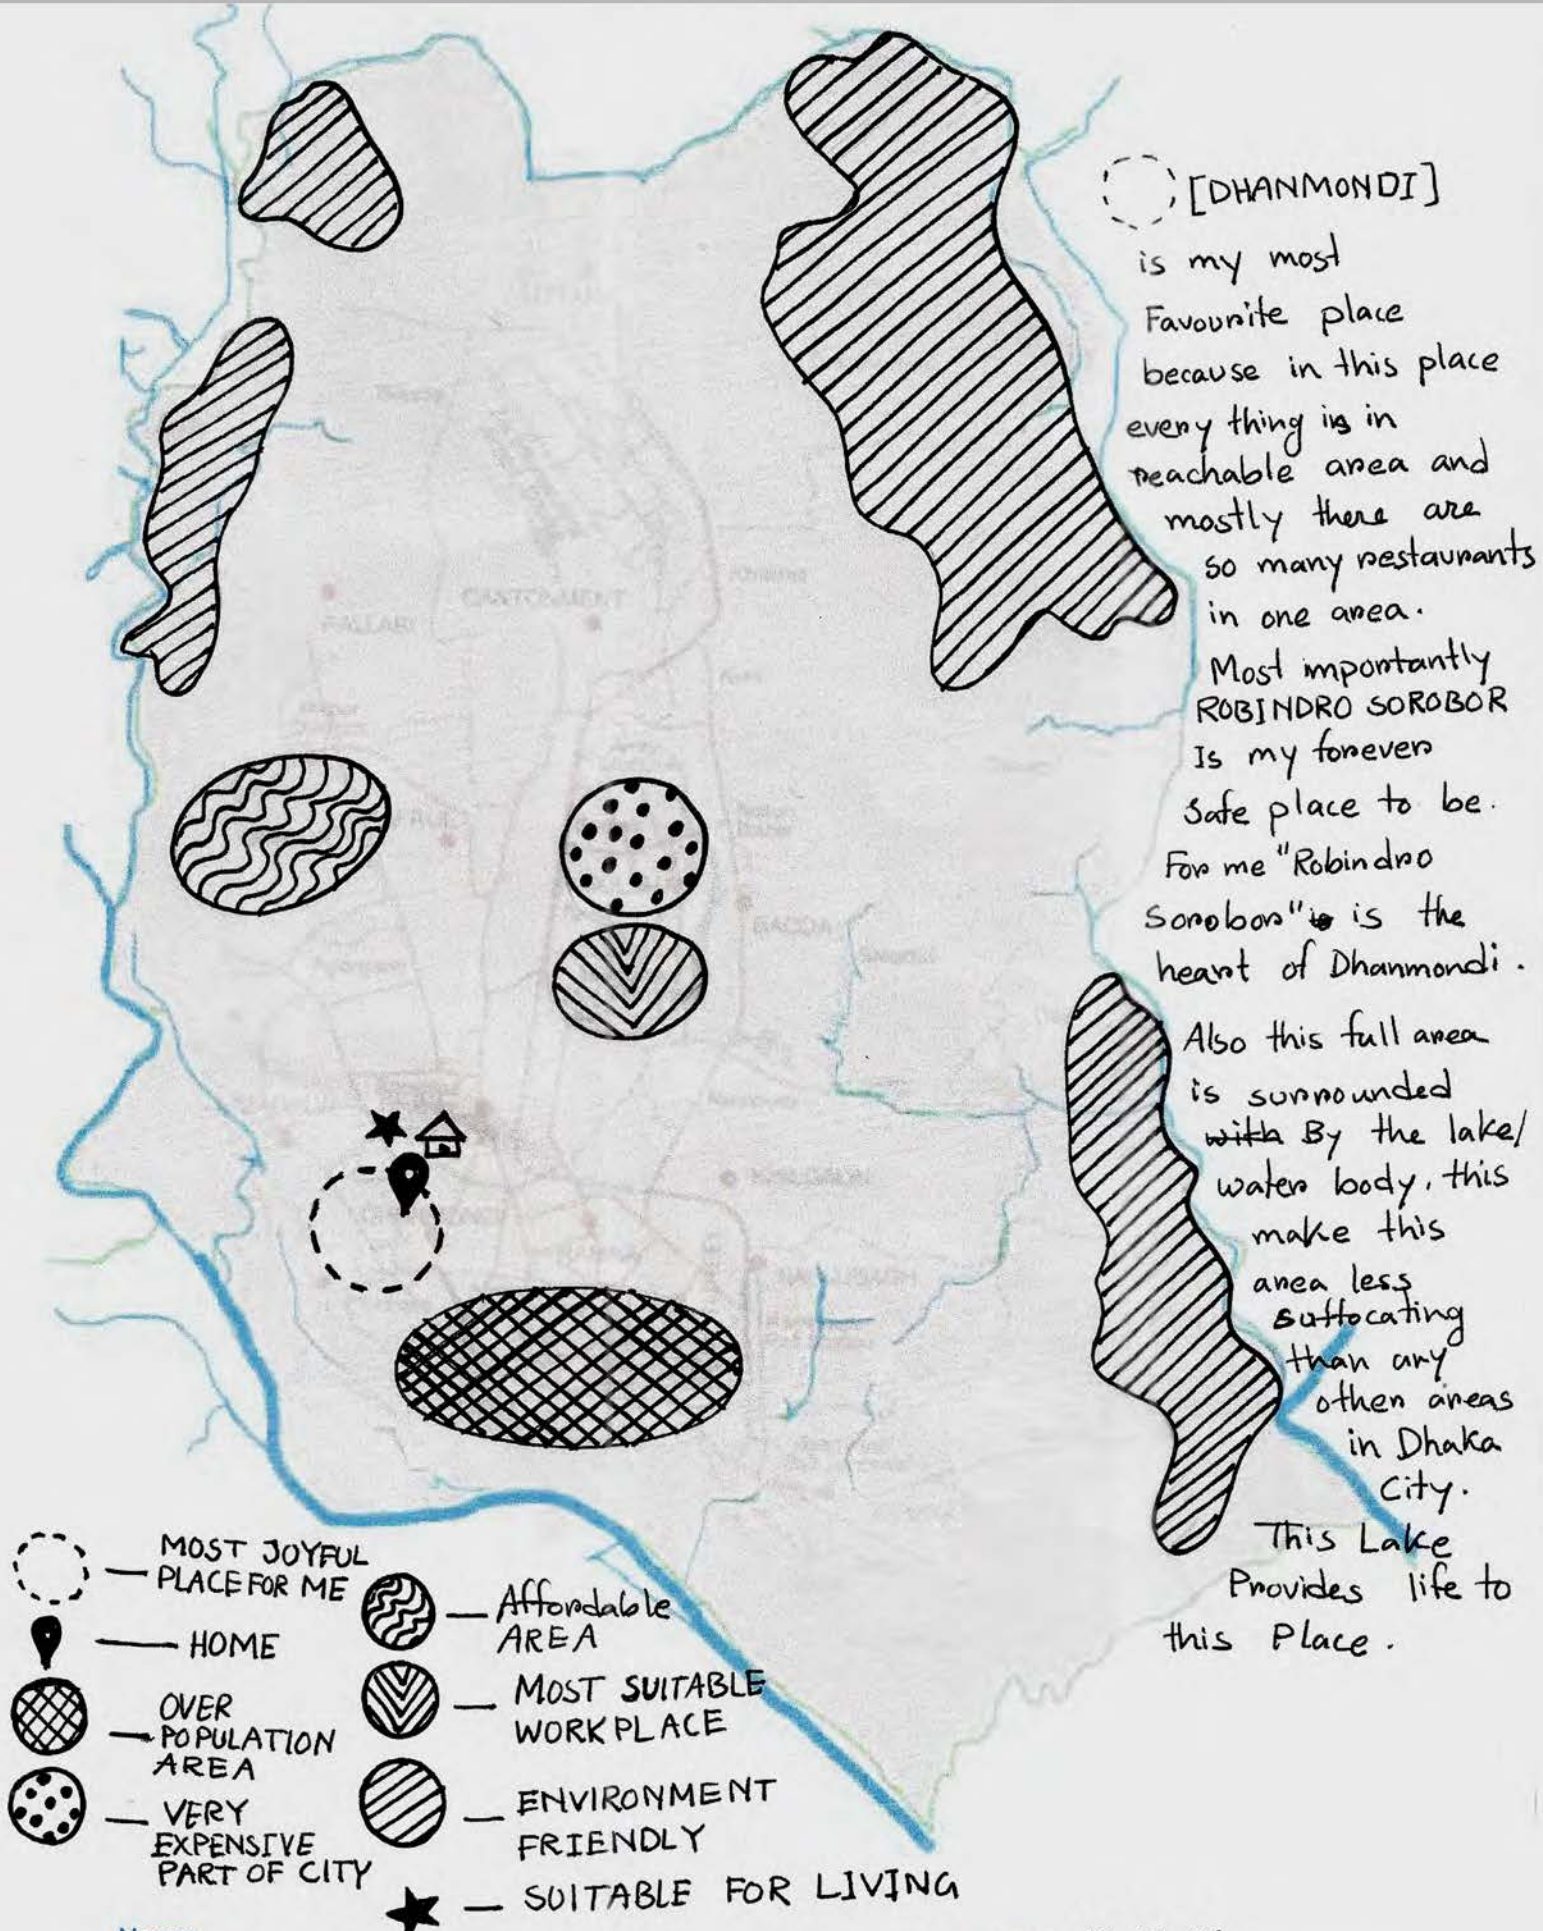 [DHANMONDI]
is my most
Favourite place
because in this place
every thing is in
reachable area and
mostly there are
so many restaurants
in one area.
Most importantly
ROBINDRO SOROBOR
Is my forever
Safe place to be.
For me "Robindro
Sorobor" is the
heart of Dhanmondi.
Also this full area
is surrounded
with By the lake/
water body, this
make this
area less
suffocating
than any
other areas
in Dhaka
City.
This Lake
Provides life to
this Place.
PALLABI
CANTONMENT
Khilkhet
BADDA
MOST JOYFUL
PLACE FOR ME
HOME
OVER
POPULATION
AREA
VERY
EXPENSIVE
PART OF CITY
Affordable
AREA
MOST SUITABLE
WORKPLACE
ENVIRONMENT
FRIENDLY
SUITABLE FOR LIVING